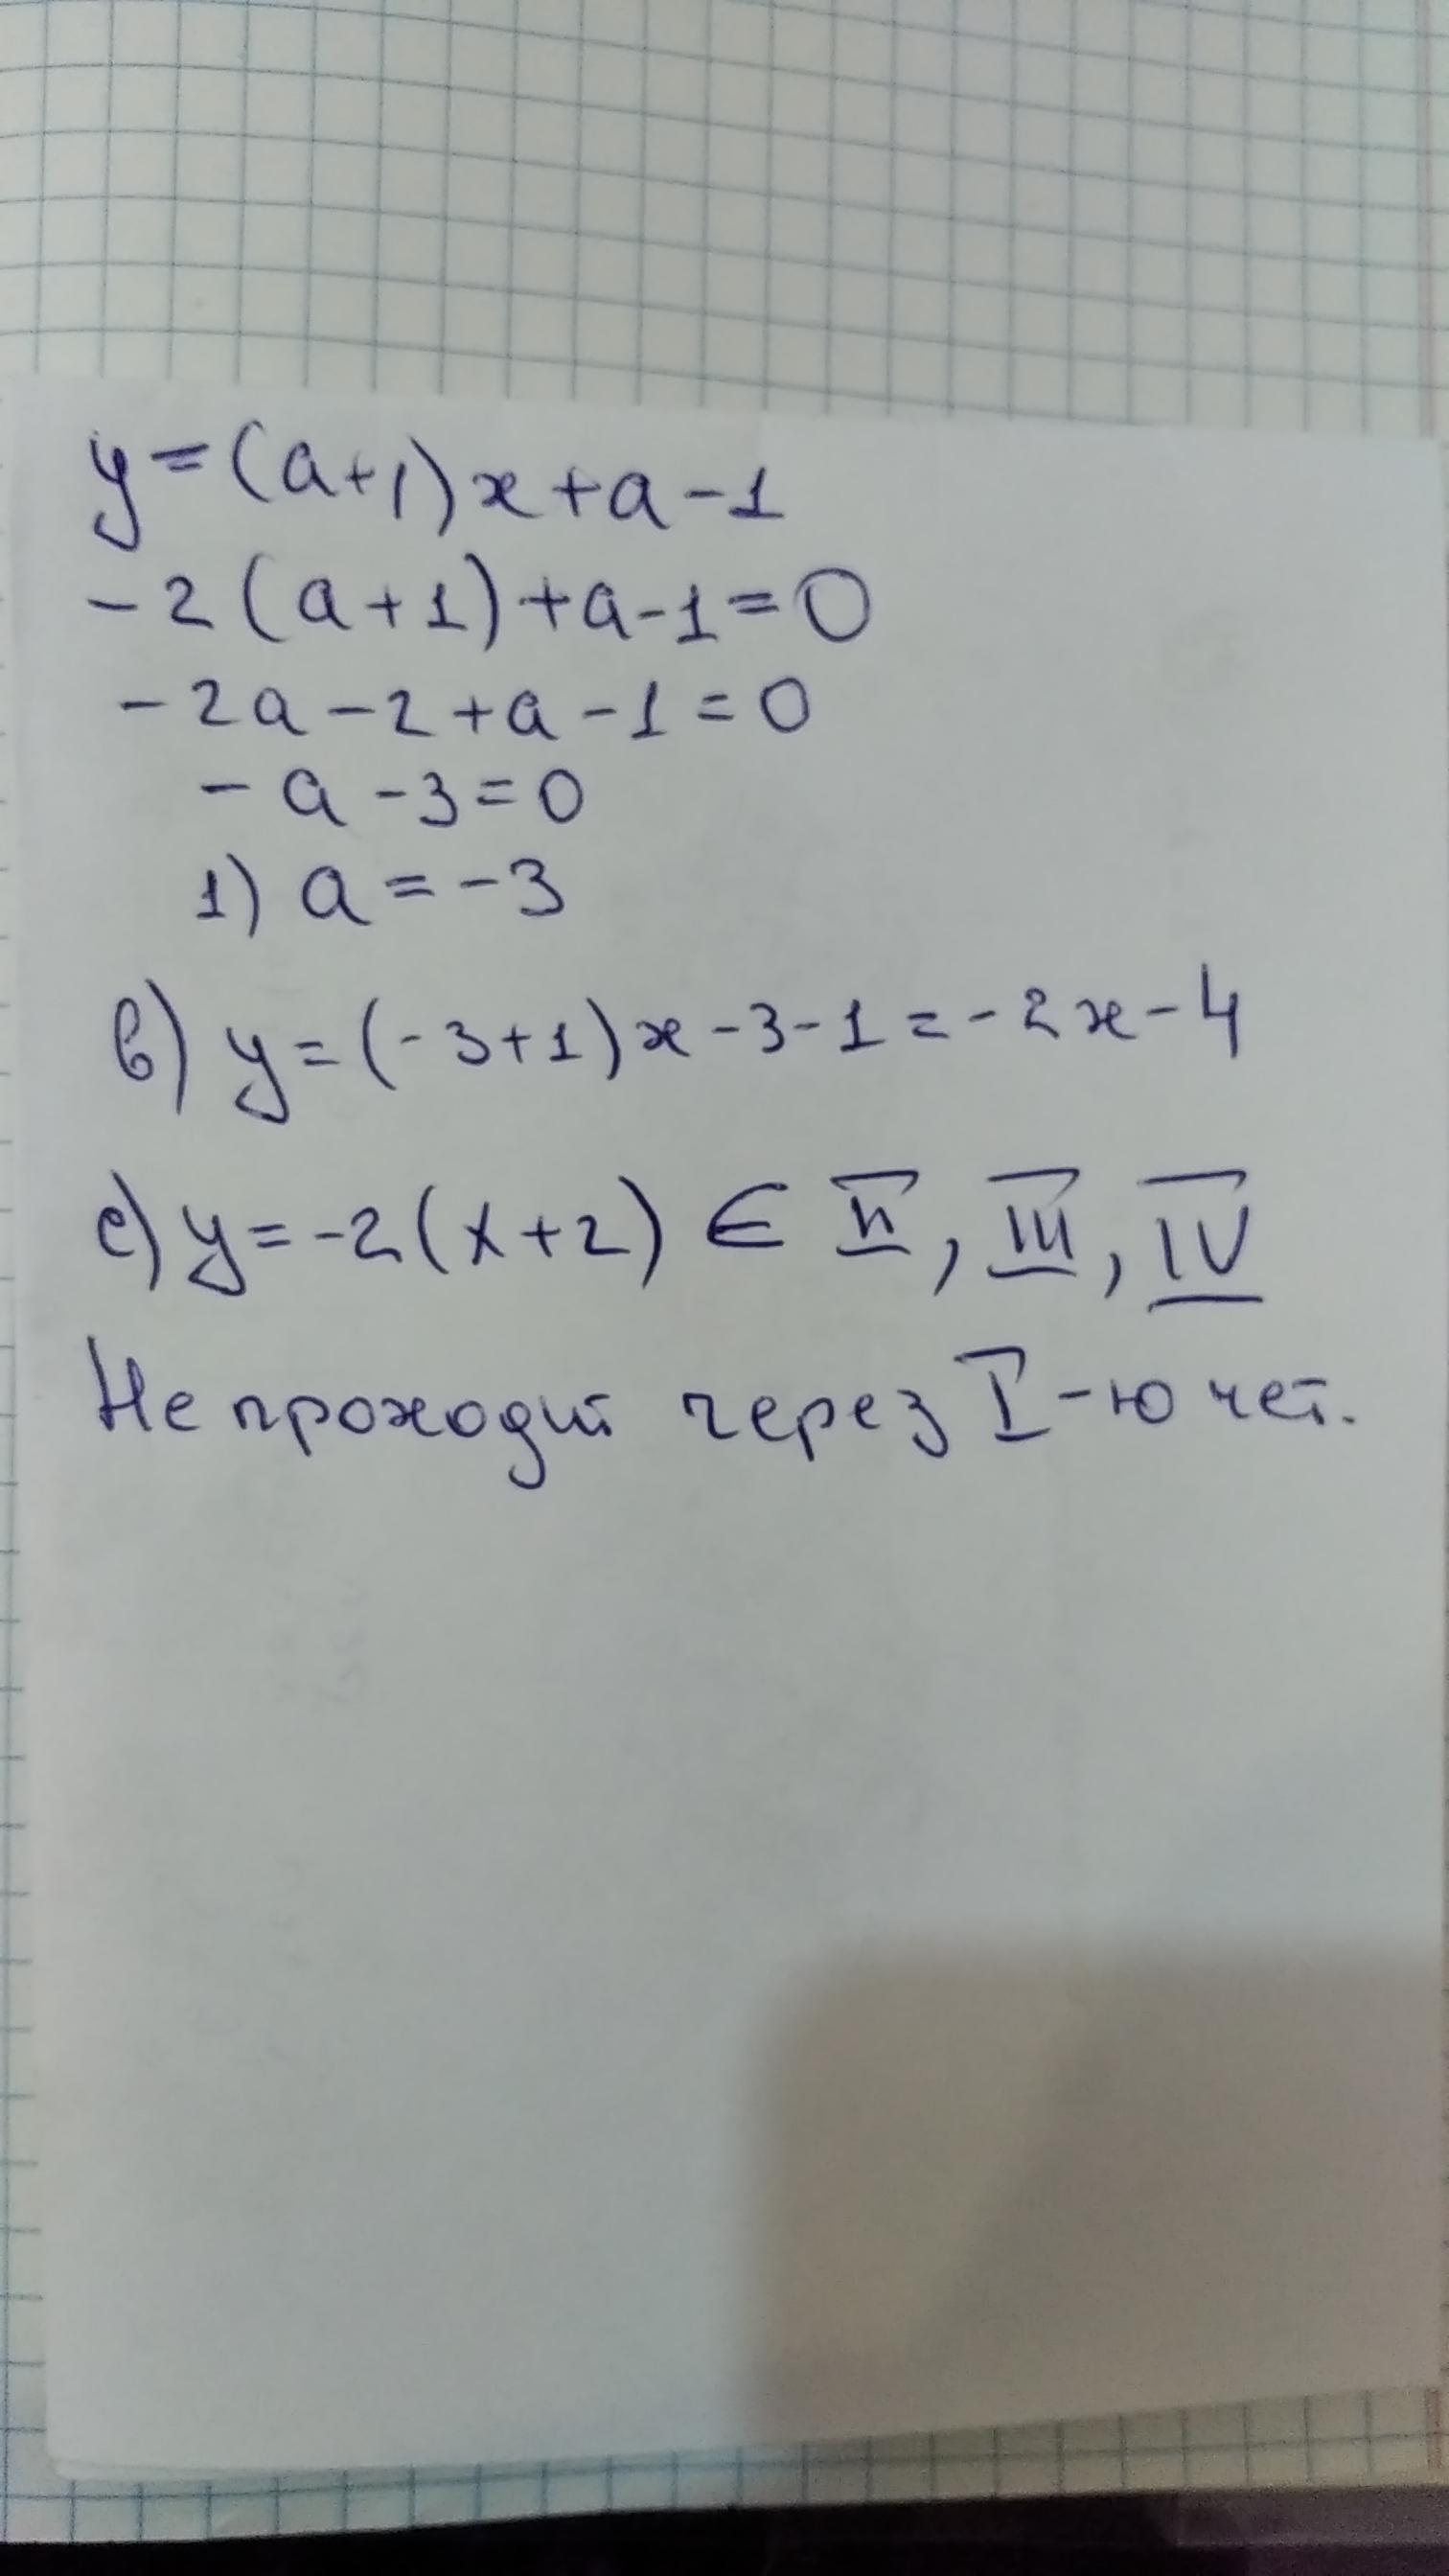 y=(a+1)x+a-1
-2(a+1)+a-1=0
-2a-2+a-1=0
-a-3=0
1) a=-3
в) y=(-3+1)x-3-1=-2x-4
с) y=-2(x+2) ∈ II, III, IV
Не проходит через I-ю чет.